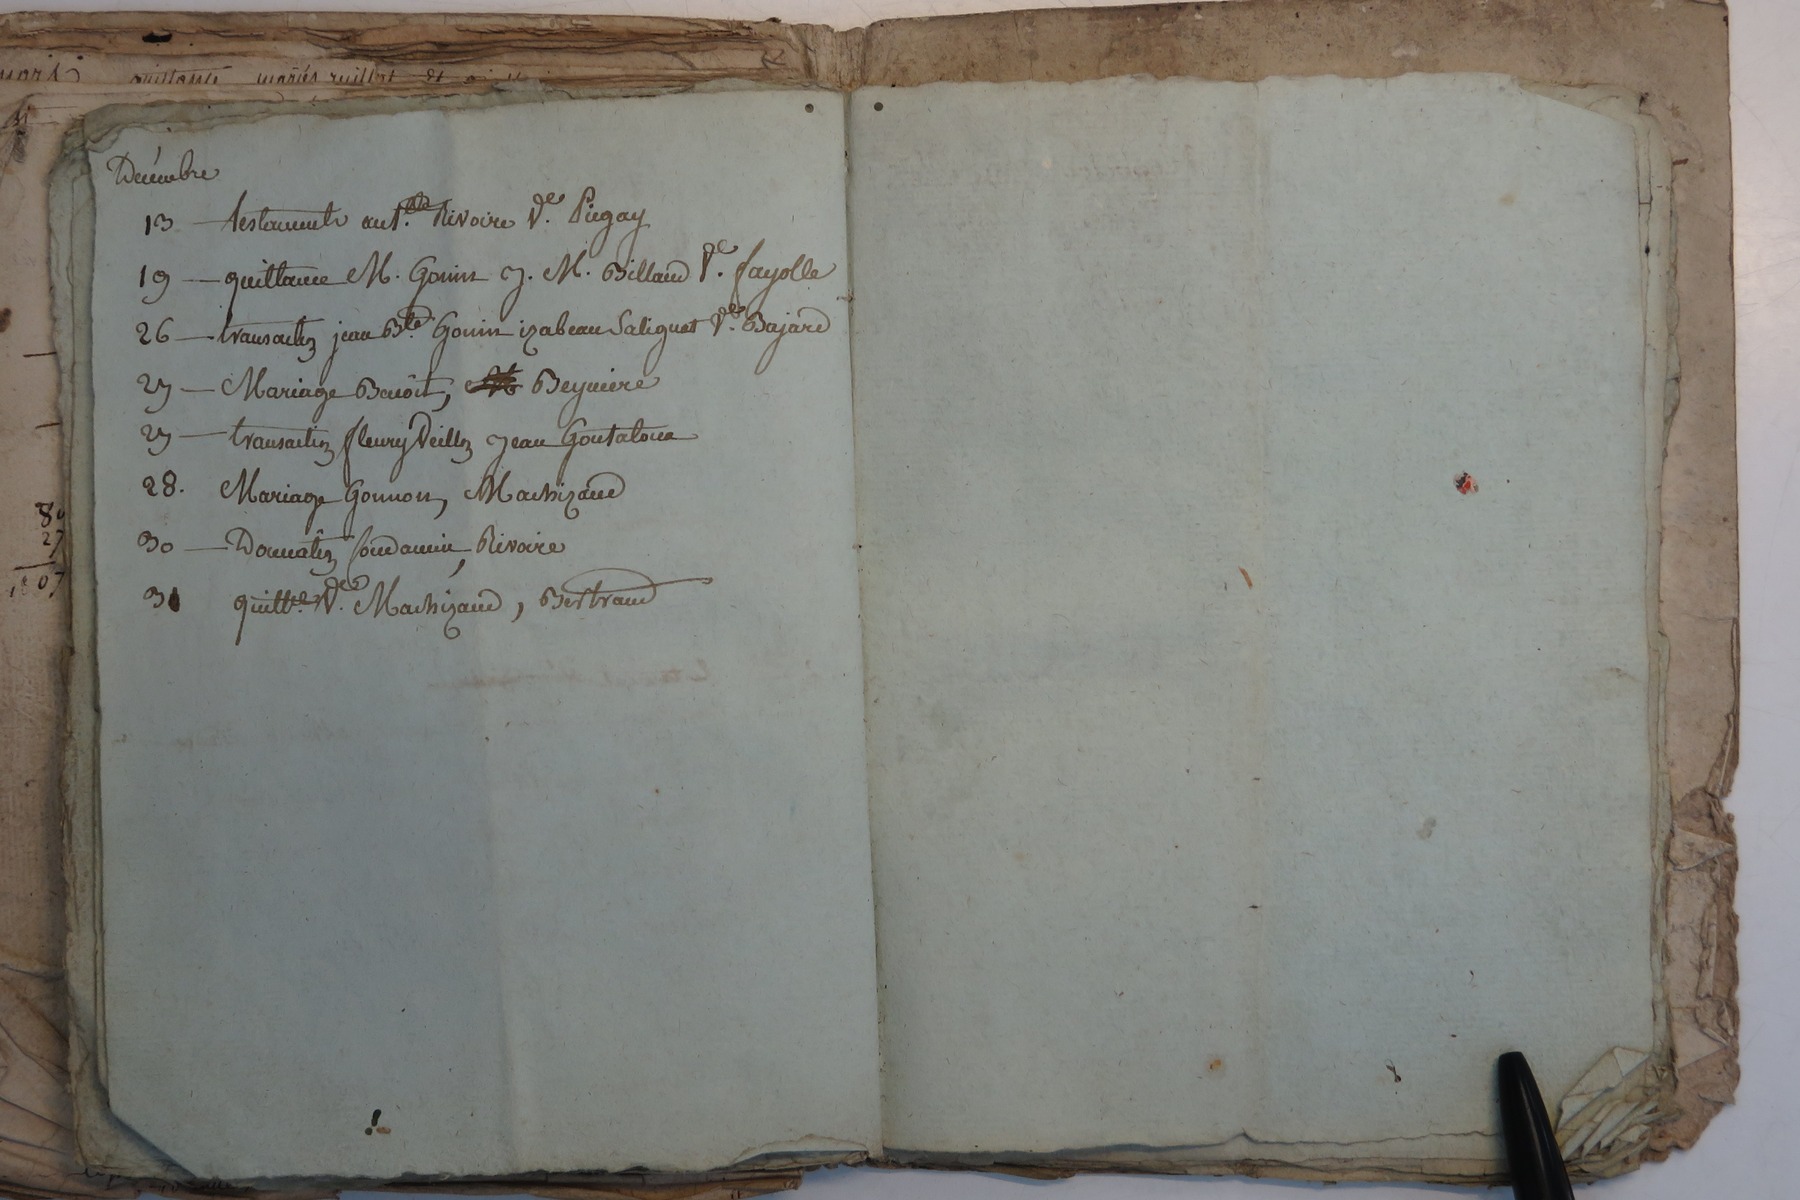 Décembre
13 — testament ant.ette Rivoire V.e Piegay
19 — quittance M. Gonin J. M. Billaud V.e fayolle
26 — transaction jean B.te Gonin izabeau Salignat V.e Bajard
27 — Mariage Benôit, Beyniere
27 — transaction fleury Veillon Jean Goutalone
28. Mariage Gonnon, Machizaud
30 — Donnation fondamin, Rivoire
31 quitt.ce V.e Machizaud, Bertrand
quittance mariés
80
27